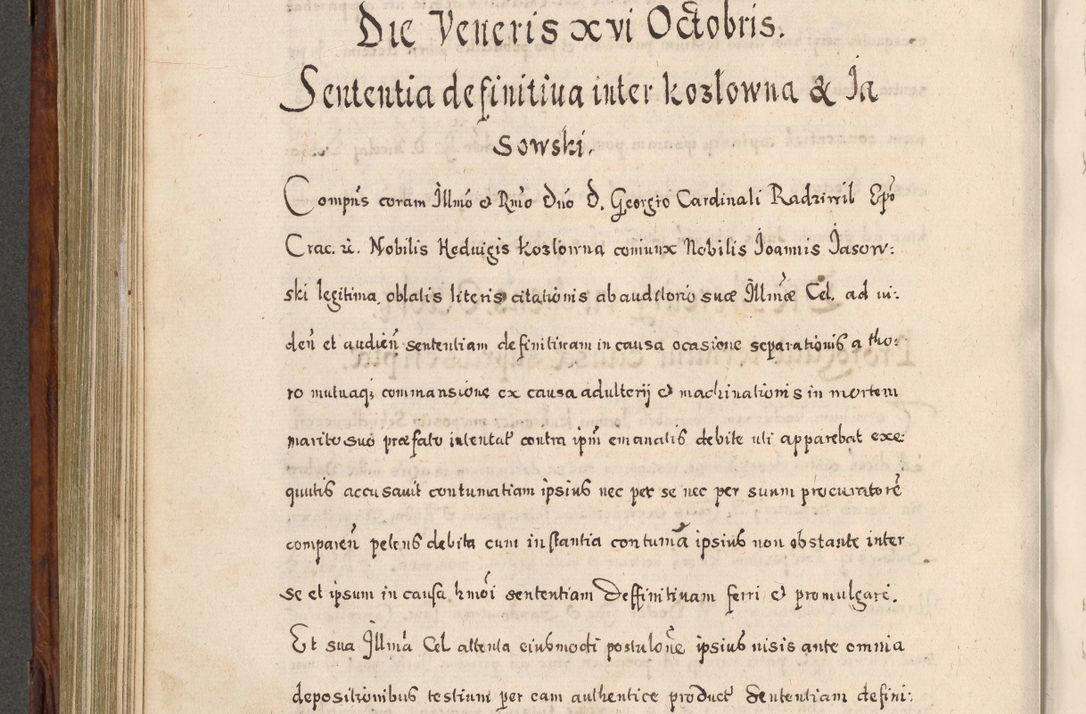 Die Veneris xvi Octobris.
Sententia definitiua inter kozłowna & Ja
sowski.
Compn̄s coram Illmo et Rmo Dno D. Georgio Cardinali Radziwil Epo
Crac. &c. Nobilis Heduigis kozłowna coniunx Nobilis Joannis Jasow:
ski legitima, oblatis literis citationis ab auditorio suæ Illmæ Cel. ad ui:
den̄ et audien̄ sententiam definitiuam in causa ocasione separationis a tho:
ro mutuaq; commansione ex causa adulterij et machinationis in mortem
marito suo præfato intentat contra ipm̄ emanatis debite uti apparebat exe:
quutis accusauit contumatiam ipsius nec per se nec per suum procuratorē
comparen̄ petens debita cum instantia contumā ipsius non obstante inter
se et ipsum in causa hmōi sententiam Deffinitiuam ferri et promulgari.
Et sua Illmā Cel attenta eiusmodi postulōne ipsius uisis ante omnia
depositionibus testium per eam authentice product Sententiam defini: